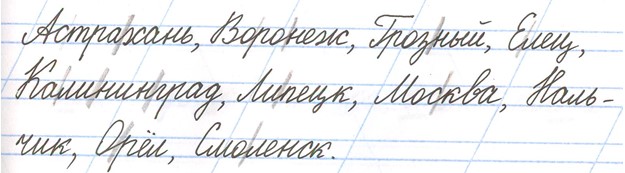 Астрахань, Воронеж, Грозный, Елец,
Калининград, Липецк, Москва, Наль-
чик, Орёл, Смоленск.